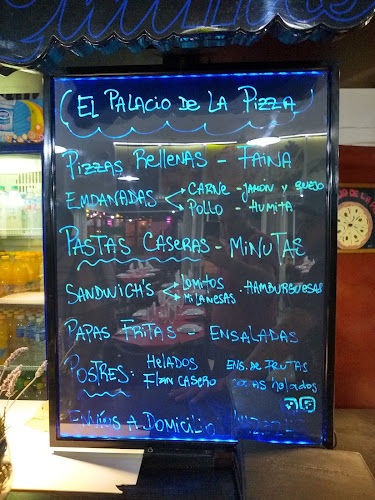 EL PALACIO DE LA PIZZA
PIZZAS RELLENAS - FAINA
EMPANADAS CARNE - JAMÓN y QUESO
POLLO - HUMITA
PASTAS CASERAS - MINUTAS
SANDWICH'S LOMITOS - HAMBURGUESAS
MILANESAS
PAPAS FRITAS - ENSALADAS
POSTRES: HELADOS ENS. DE FRUTAS
FLAN CASERO COPAS helados
ENVIOS A DOMICILIO